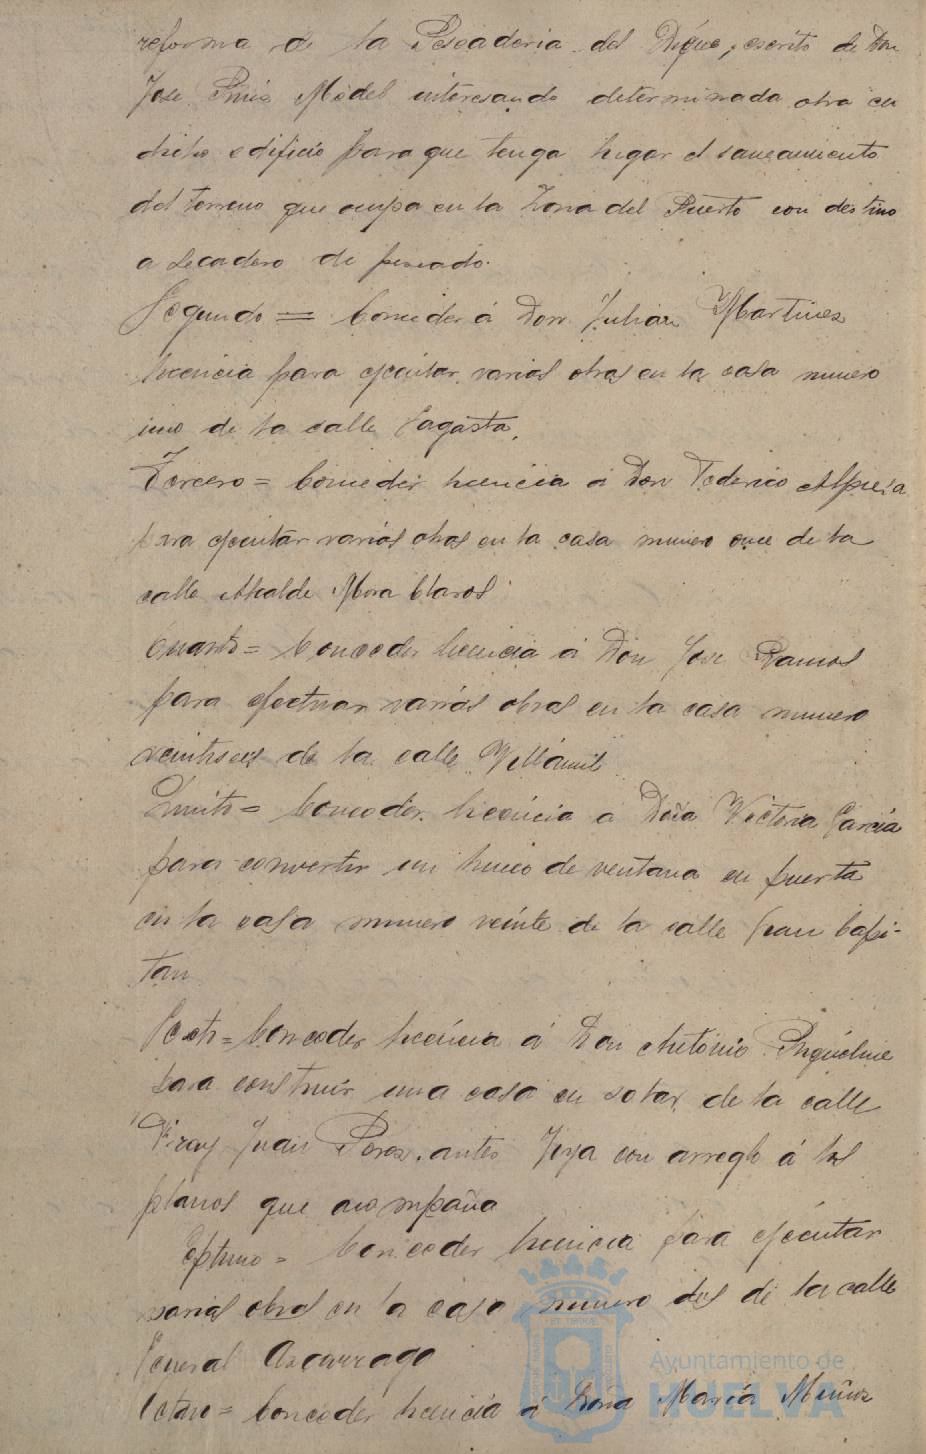 reforma de la Pescaderia del Dique, escrito de Don
Jose Model interesando determinada obra en
dicho edificio para que tenga lugar el saneamiento
del terreno que ocupa en la Zona del Puerto con destino
a secadero de pescado.
Segundo = Conceder á Don Julian Martinez
licencia para ejecutar varias obras en la casa numero
uno de la calle Sagasta.
Tercero = Conceder licencia á Don Federico
para ejecutar varias obras en la casa numero once de la
calle Alcalde Mora Claros
Cuarto = Conceder licencia á Don Jose Ramos
para efectuar varias obras en la casa numero
veintiseis de la calle Villamil
Quinto = Conceder licencia a Doña Victoria Garcia
para convertir un hueco de ventana en puerta
en la casa numero veinte de la calle Gran Capi-
tan
Sexto = Conceder licencia á Don Antonio
para construir una casa en solar de la calle
Fray Juan Perez, antes Joya con arreglo á los
planos que acompaña
Septimo = Conceder licencia para ejecutar
varias obras en la casa numero dos de la calle
General Azcarraga
Octavo = Conceder licencia á Doña María Muñoz
Ayuntamiento de
HUELVA